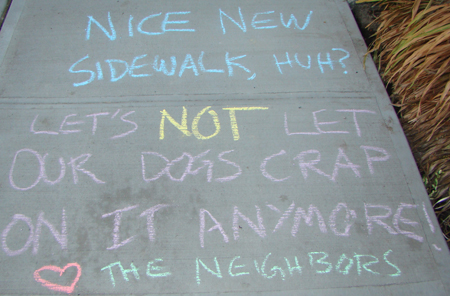 NICE NEW
SIDEWALK, HUH?
LET'S NOT LET
OUR DOGS CRAP
ON IT ANYMORE!
♥ THE NEIGHBORS